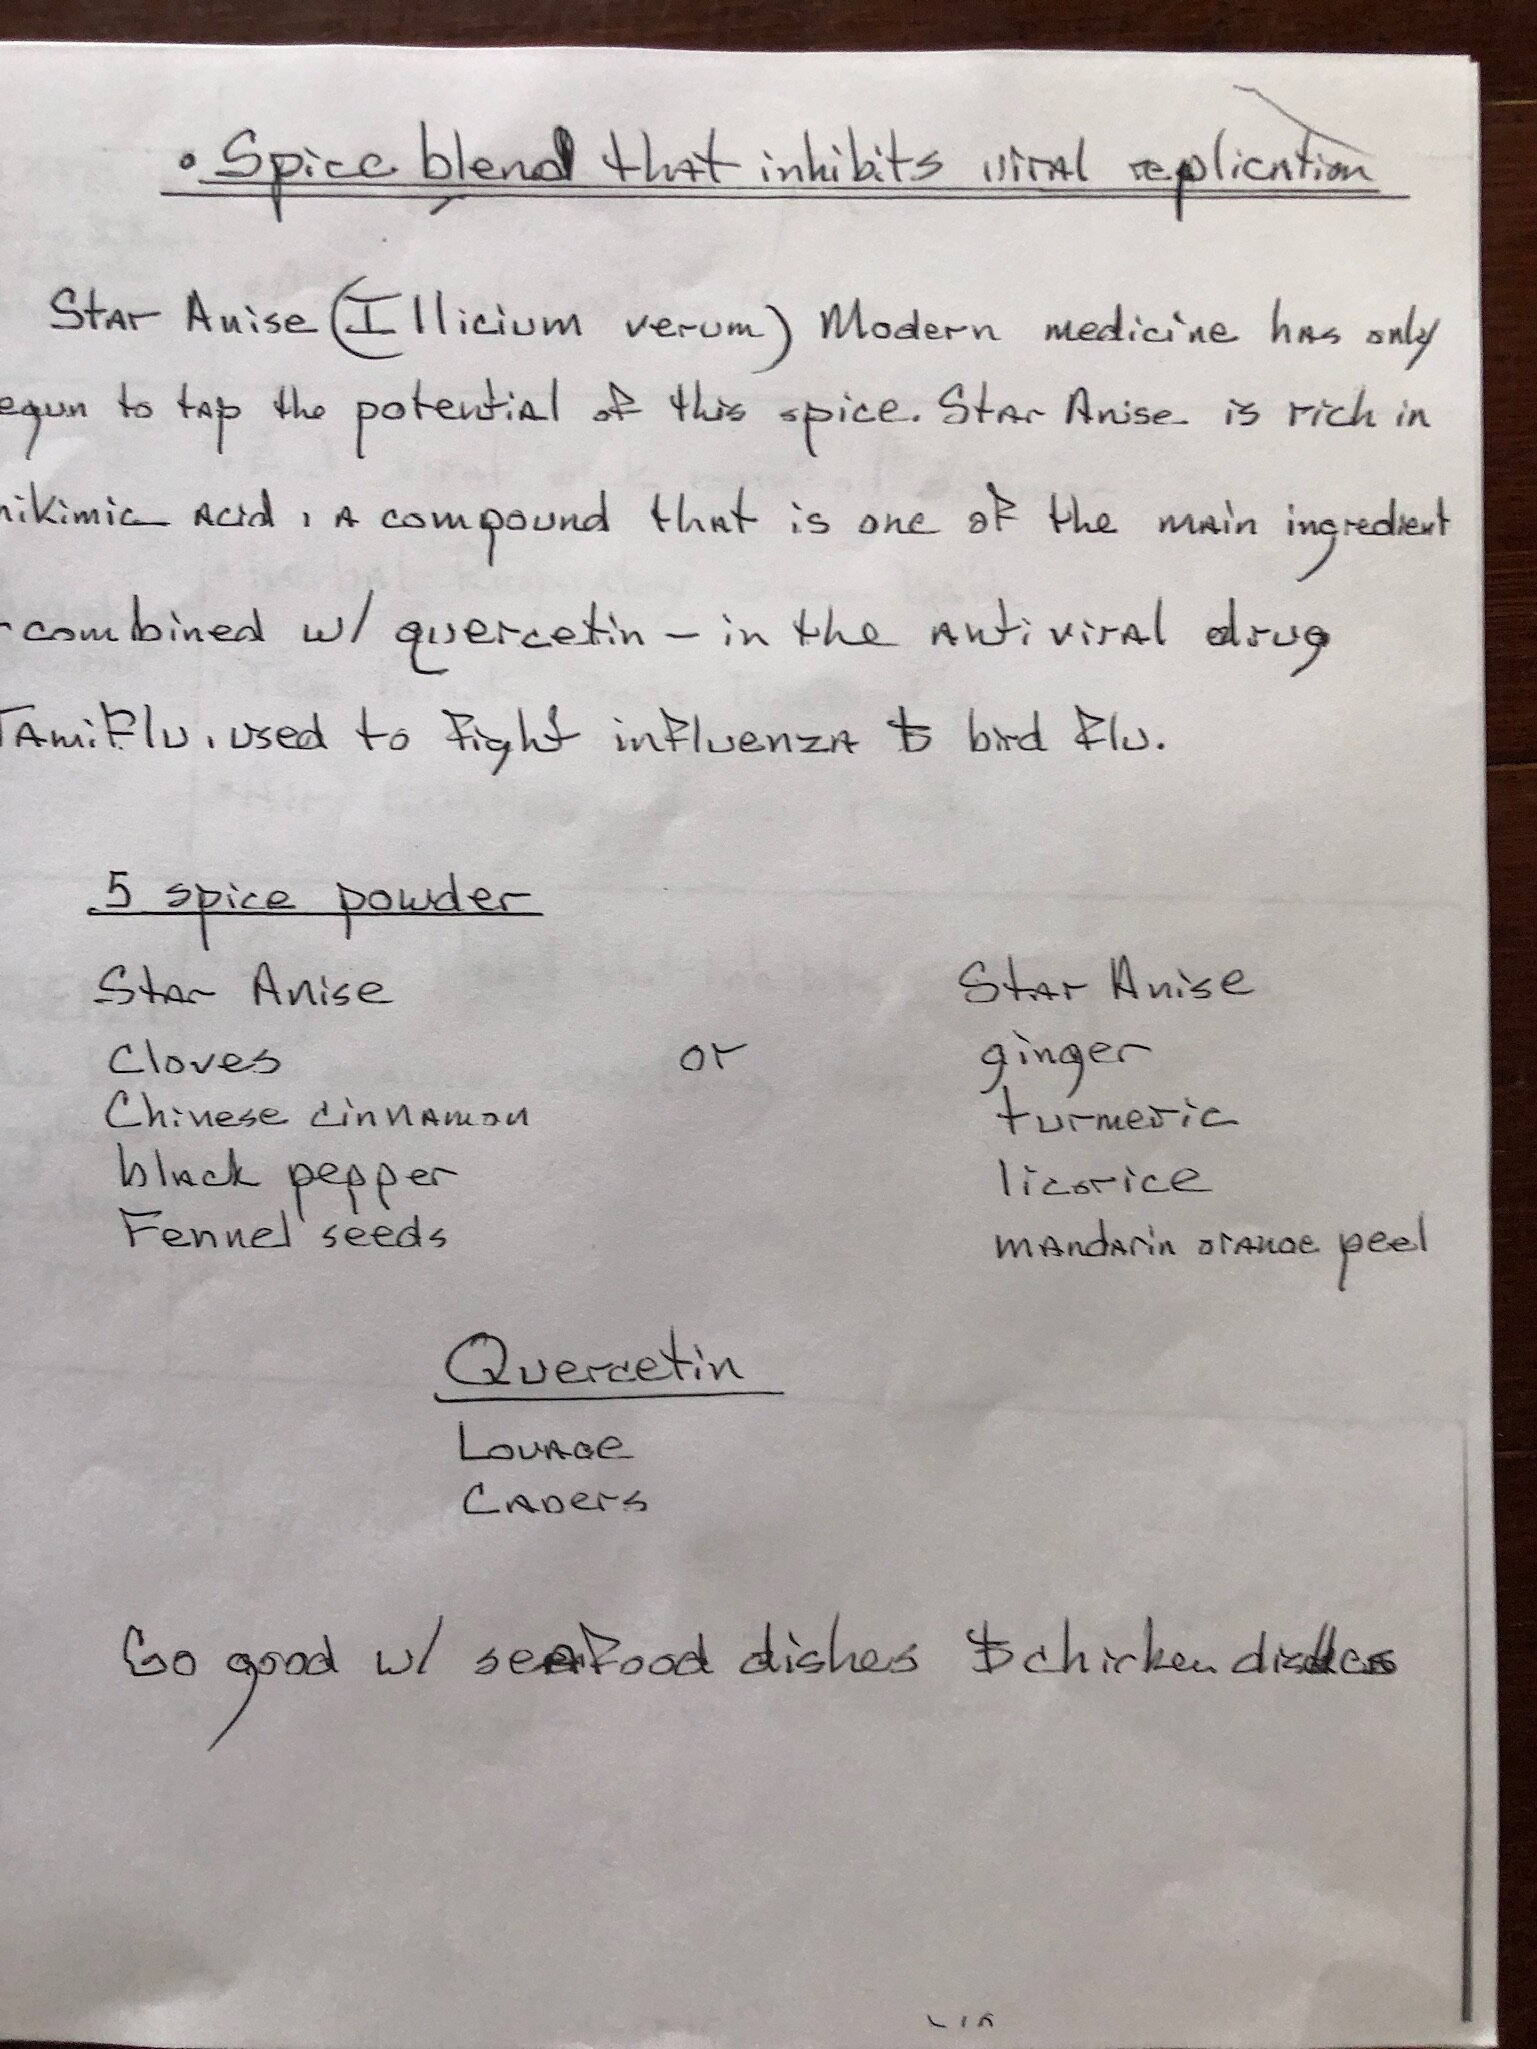 • Spice blend that inhibits viral replication
Star Anise (Illicium verum) Modern medicine has only
egun to tap the potential of this spice. Star Anise is rich in
hikimic acid, a compound that is one of the main ingredient
-combined w/ quercetin - in the antiviral drug
TamiFlu, used to fight influenza & bird flu.
5 spice powder
Star Anise Star Anise
Cloves or ginger
Chinese cinnamon turmeric
black pepper licorice
Fennel seeds mandarin orange peel
Quercetin
Lovage
Capers
Go good w/ seafood dishes & chicken dishes